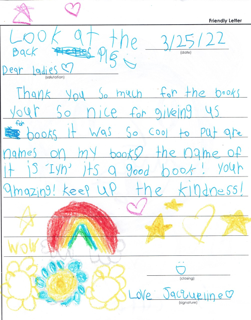 Friendly Letter
Look at the
Back Pg
3/25/22
(date)
Dear ladies
(salutation)
Thank you so much for the books
your so nice for giveing us
books it was so cool to put are
names on my book the name of
it is "Iyn" its a good book! your
amazing! keep up the kindness!
WOW
(closing)
Love Jacqueline
(signature)